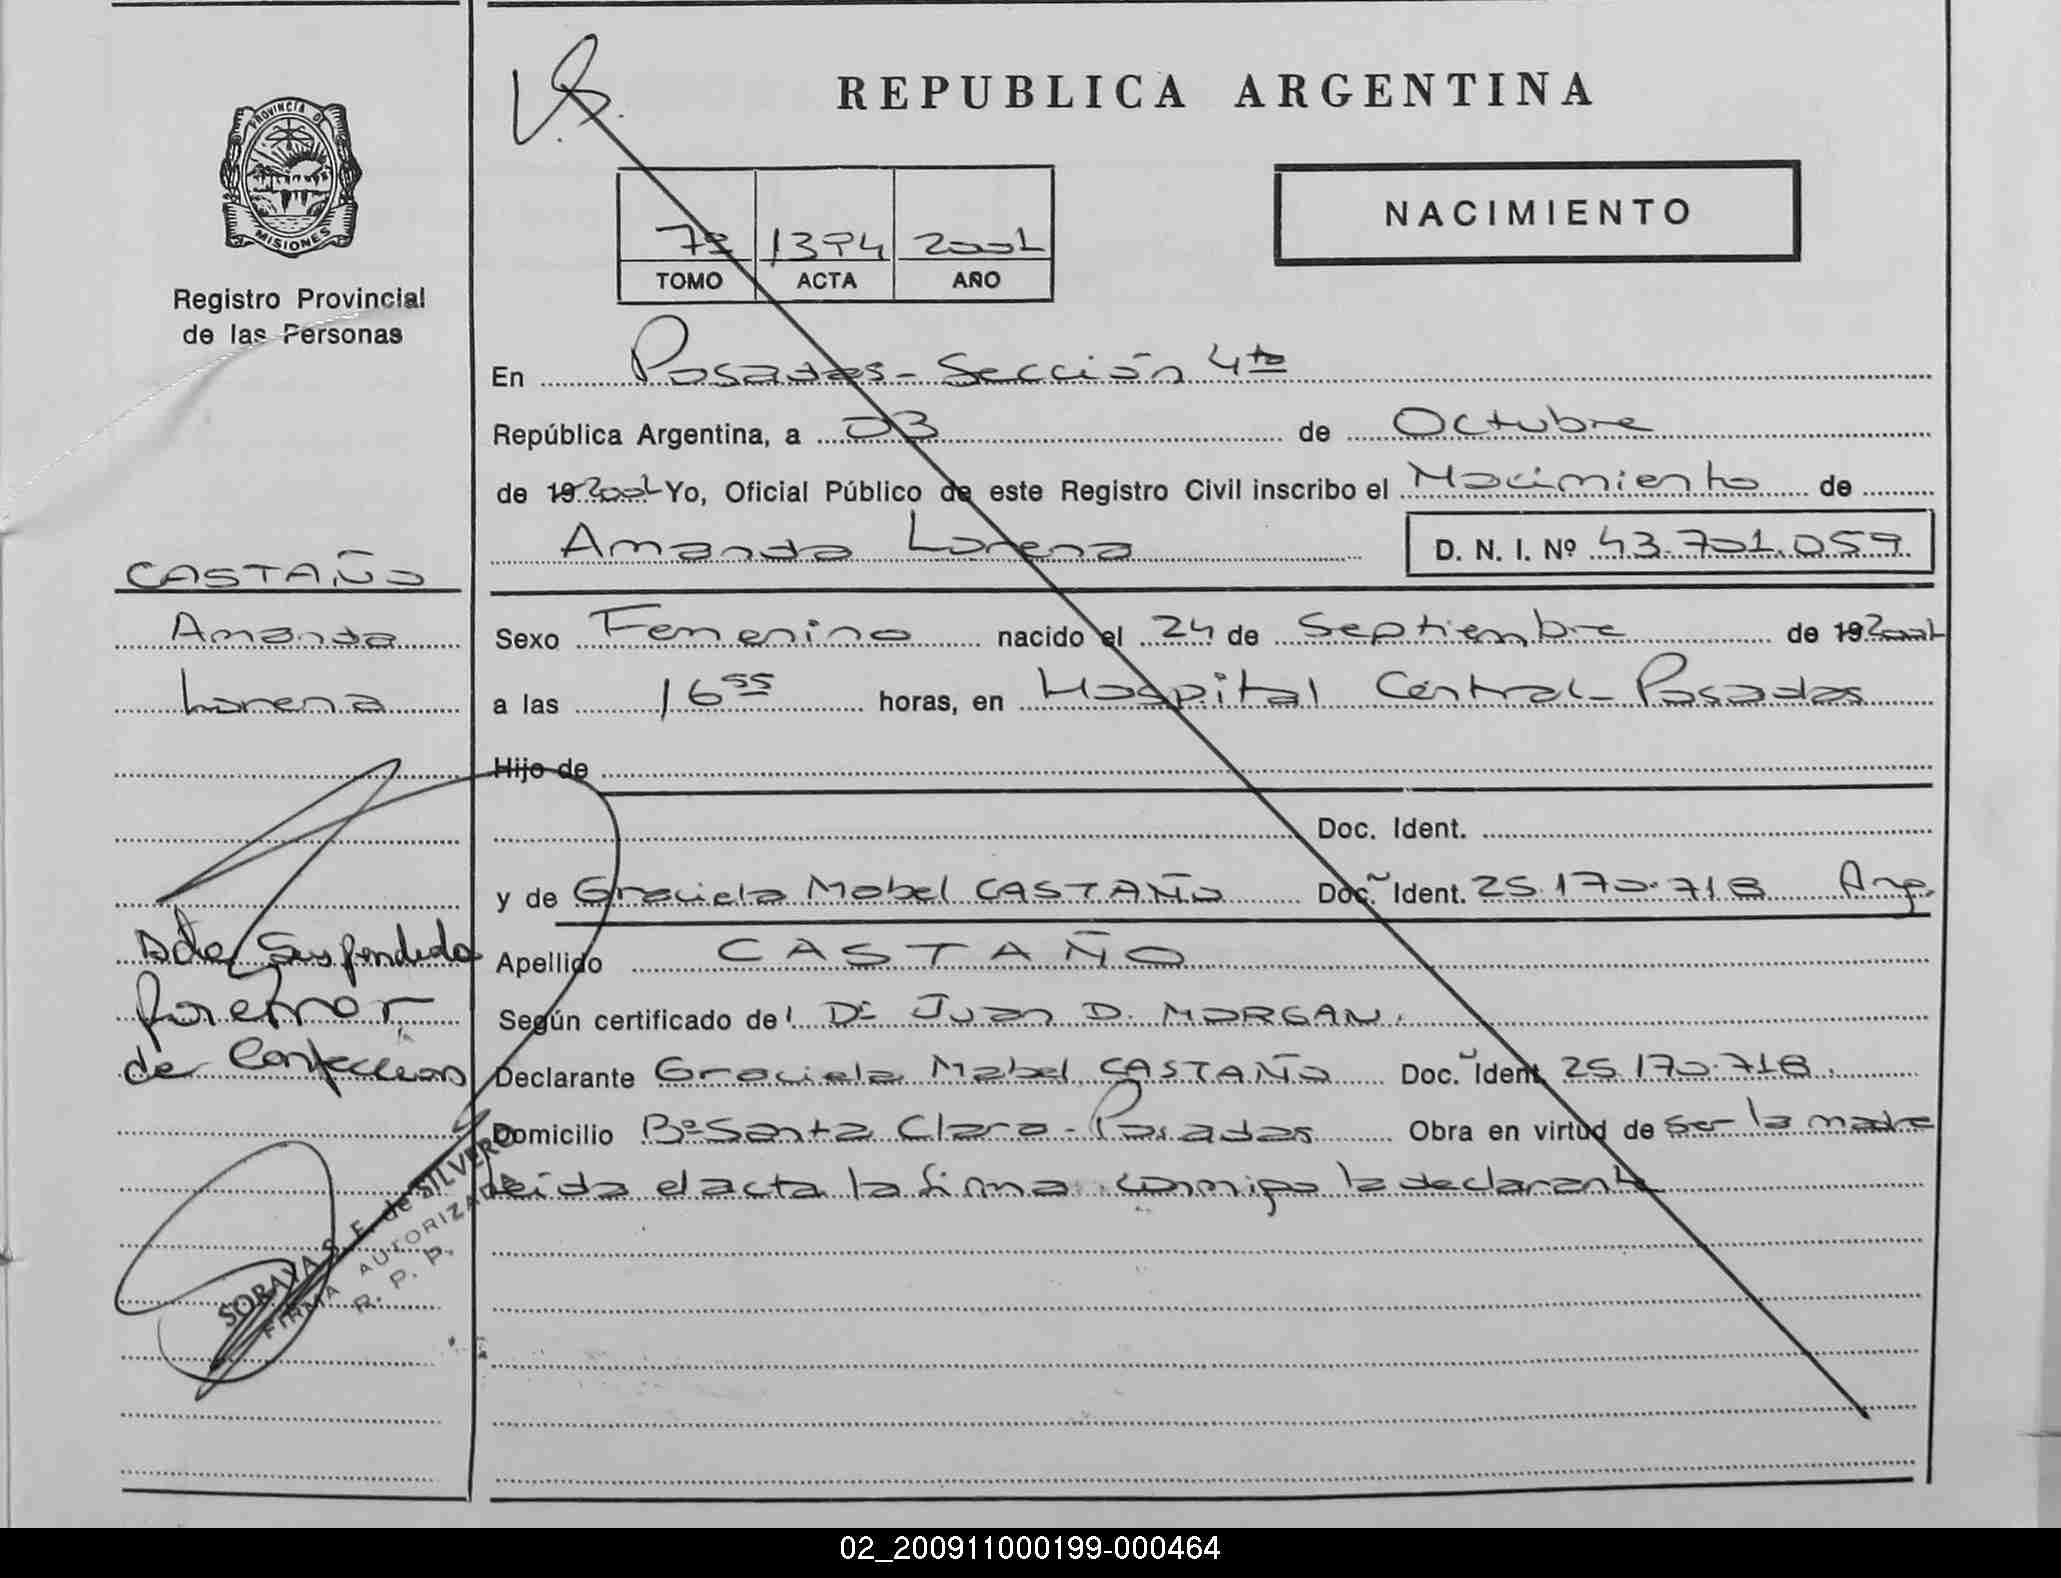 REPUBLICA ARGENTINA
PROVINCIA D
MISIONES
Registro Provincial
de las Personas
NACIMIENTO
1394 2001
TOMO ACTA AÑO
En Posadas - Sección 4ta
República Argentina, a 03 de Octubre
de 19 2001 Yo, Oficial Público de este Registro Civil inscribo el Nacimiento de
Amanda Lorena D. N. I. Nº 43.701.059
CASTAÑO
Amanda
Lorena
Sexo Femenino nacido el 24 de Septiembre de 19 2001
a las 16 55 horas, en Hospital Central - Posadas
Hijo de
Doc. Ident.
y de Graciela Mabel CASTAÑO Doc. Ident. 25.170.718 Arg.
Apellido CASTAÑO
Según certificado del Dr Juan D. MORGAN.
Declarante Graciela Mabel CASTAÑO Doc. Ident. 25.170.718.
Domicilio Bº Santa Clara - Posadas Obra en virtud de ser la madre
leida el acta la firma conmigo la declarante
Acta Suspendida
por error
de Confección
SORAYA S. F. de SILVERO
FIRMA AUTORIZADA
R. P. P.
02_200911000199-000464